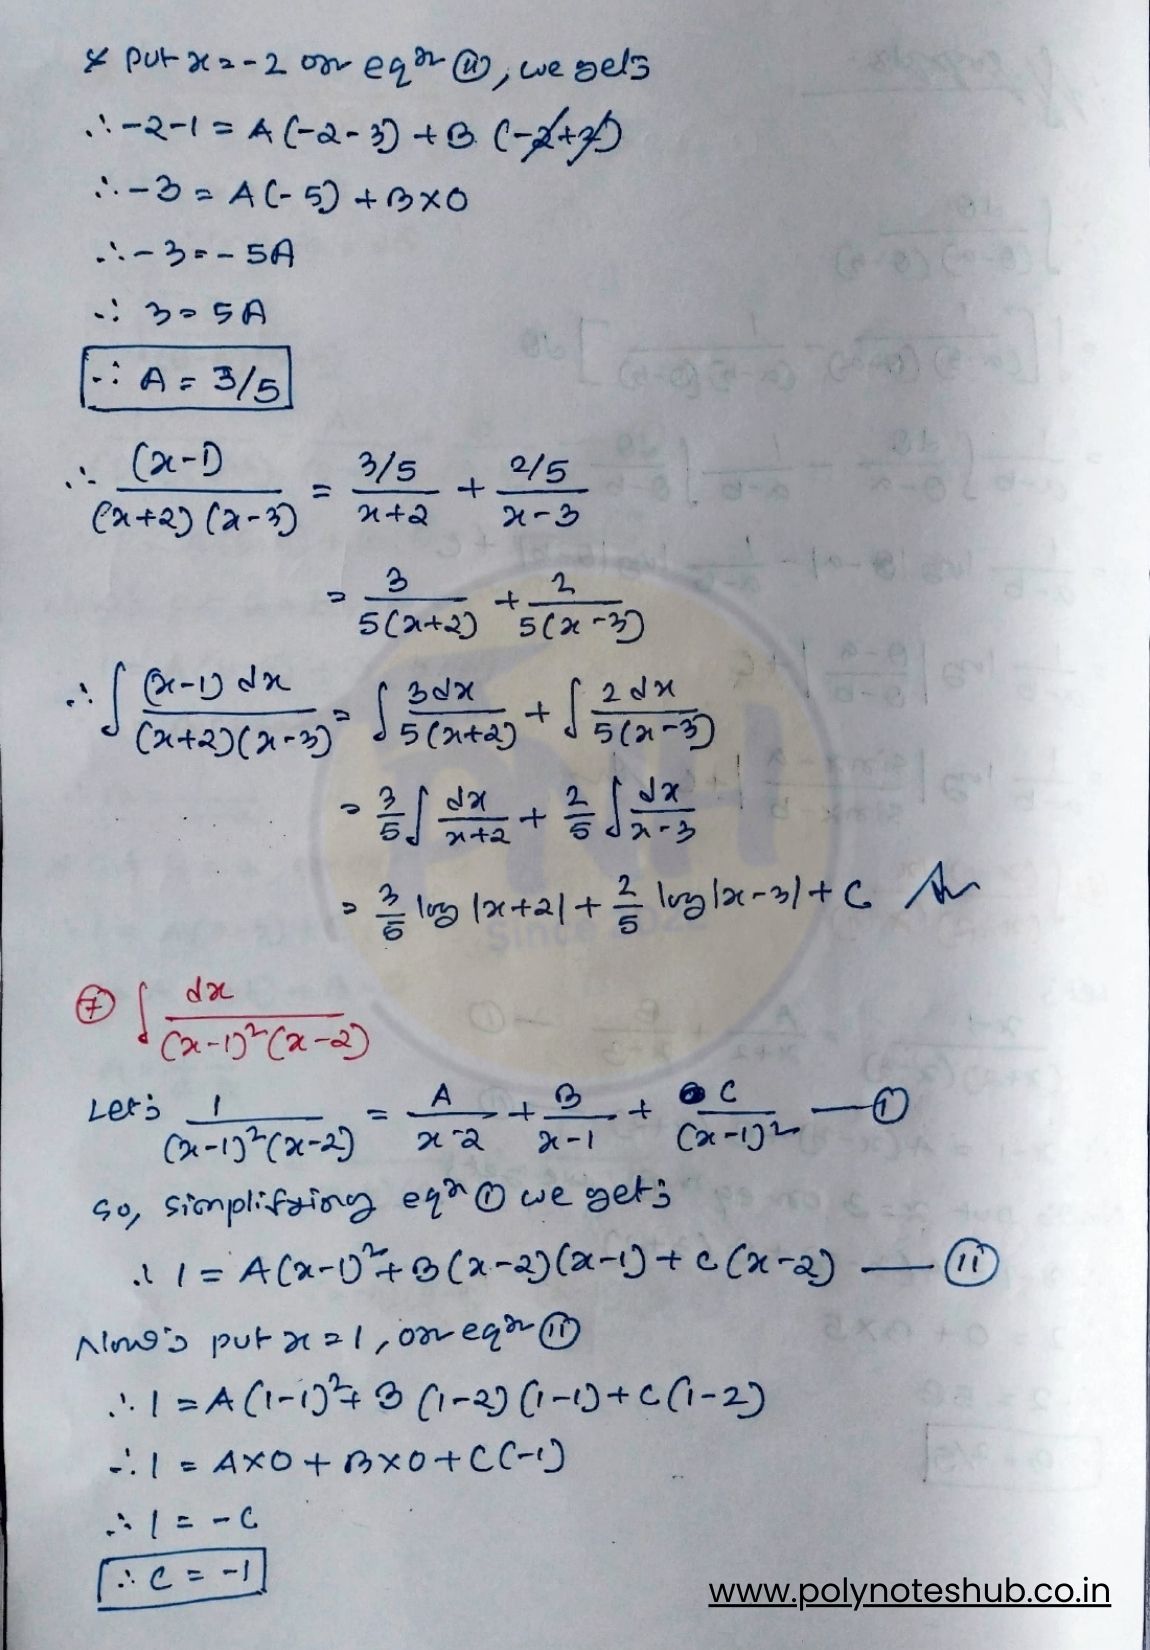 * Put x = -2 on eqn (ii), we gets
∴ -2-1 = A(-2-3) + B (-2+2)
∴ -3 = A(-5) + B×0
∴ -3 = -5A
∴ 3 = 5A
∴ A = 3/5
∴ (x-1)/((x+2)(x-3)) = (3/5)/(x+2) + (2/5)/(x-3)
= 3/(5(x+2)) + 2/(5(x-3))
∴ ∫ (x-1) dx/((x+2)(x-3)) = ∫ 3dx/(5(x+2)) + ∫ 2 dx/(5(x-3))
= 3/5 ∫ dx/(x+2) + 2/5 ∫ dx/(x-3)
= 3/5 log |x+2| + 2/5 log |x-3| + C Ans
Since 2022
⑦ ∫ dx/((x-1)²(x-2))
Let's 1/((x-1)²(x-2)) = A/(x-2) + B/(x-1) + C/(x-1)² — (i)
So, simplifying eqn (i) we gets
∴ 1 = A(x-1)² + B(x-2)(x-1) + C(x-2) — (ii)
Now's put x = 1, on eqn (ii)
∴ 1 = A(1-1)² + B (1-2) (1-1) + C(1-2)
∴ 1 = A×0 + B×0 + C(-1)
∴ 1 = -C
∴ C = -1
www.polynoteshub.co.in